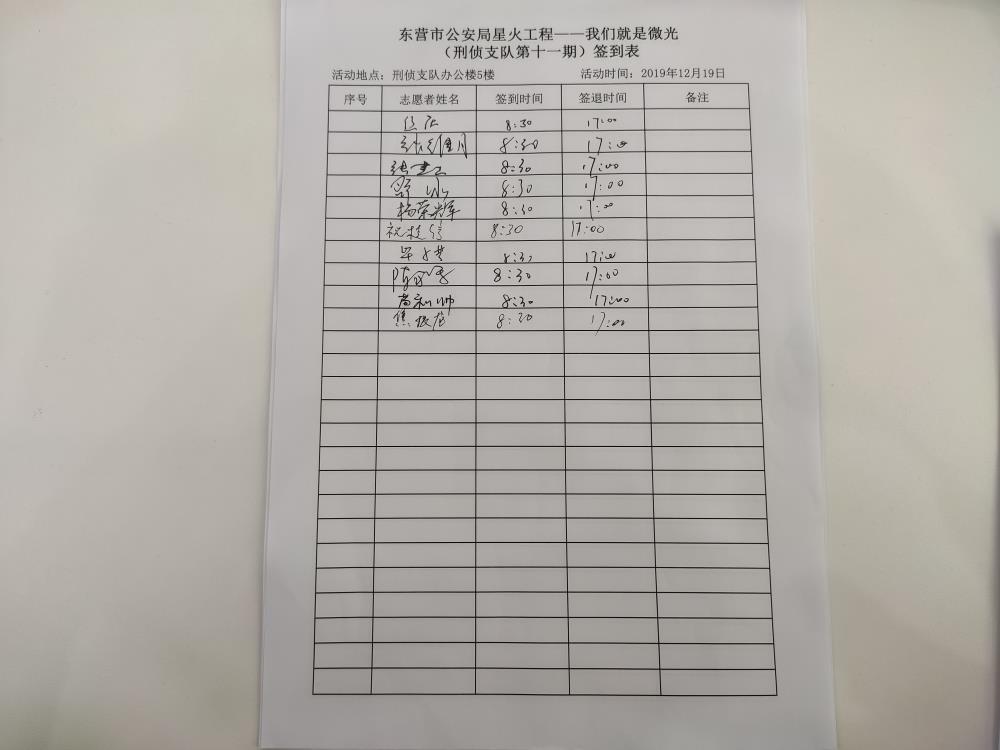 东营市公安局星火工程——我们就是微光
（刑侦支队第十一期）签到表
活动地点：刑侦支队办公楼5楼 活动时间：2019年12月19日
序号 志愿者姓名 签到时间 签退时间 备注
8:30 17:00
8:30 17:00
8:30 17:00
8:30 17:00
杨荣辉 8:30 17:00
祝 8:30 17:00
8:30 17:00
陈 8:30 17:00
尚利帅 8:30 17:00
焦 8:30 17:00